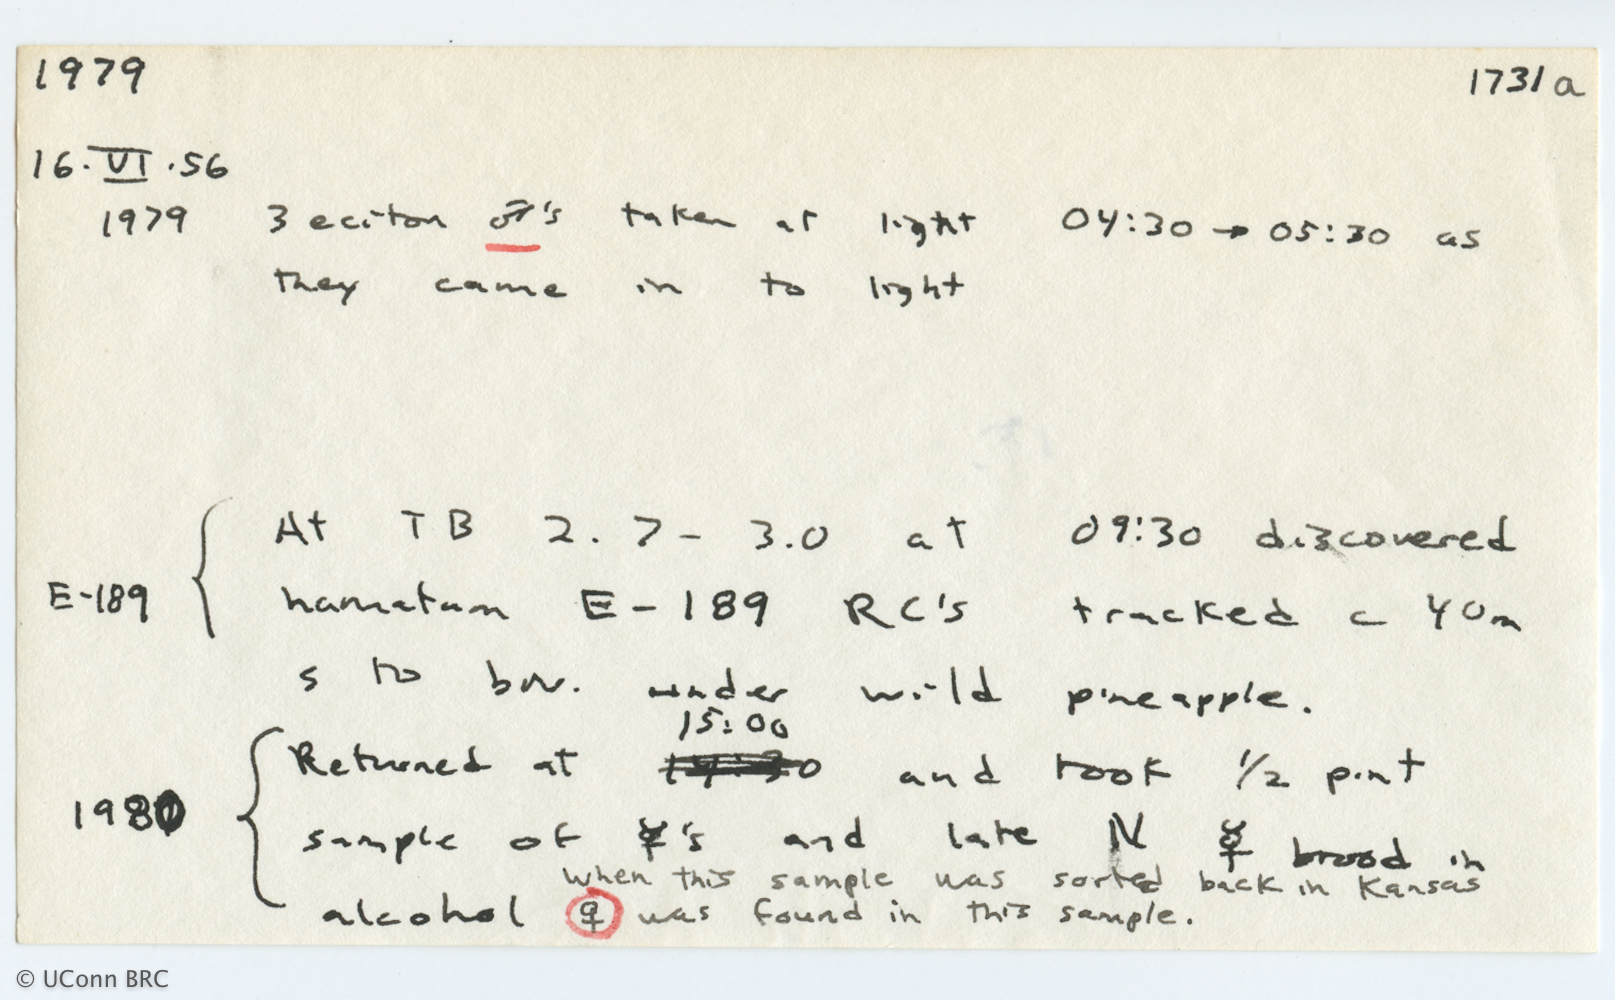 1979 1731a
16.VI.56
1979 3 eciton ♂'s taken at light 04:30 → 05:30 as
they came in to light
At TB 2.7-3.0 at 09:30 discovered
E-189 { hamatum E-189 RC's tracked c 40m
s to biv. under wild pineapple.
15:00
Returned at 14:30 and took 1/2 pint
1980 { sample of ☿'s and late N ☿ brood in
when this sample was sorted back in Kansas
alcohol ♀ was found in this sample.
© UConn BRC